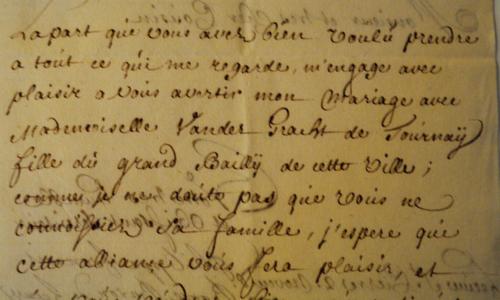 La part que vous avez bien voulu prendre
a tout ce qui me regarde, m'engage avec
plaisir a vous avertir mon Mariage avec
Mademoiselle Vander Gracht de Tournaÿ
fille du grand Baillÿ de cette ville;
comme je ne doute pas que vous ne
connoissiez sa famille, j'espere que
cette alliance vous fera plaisir, et